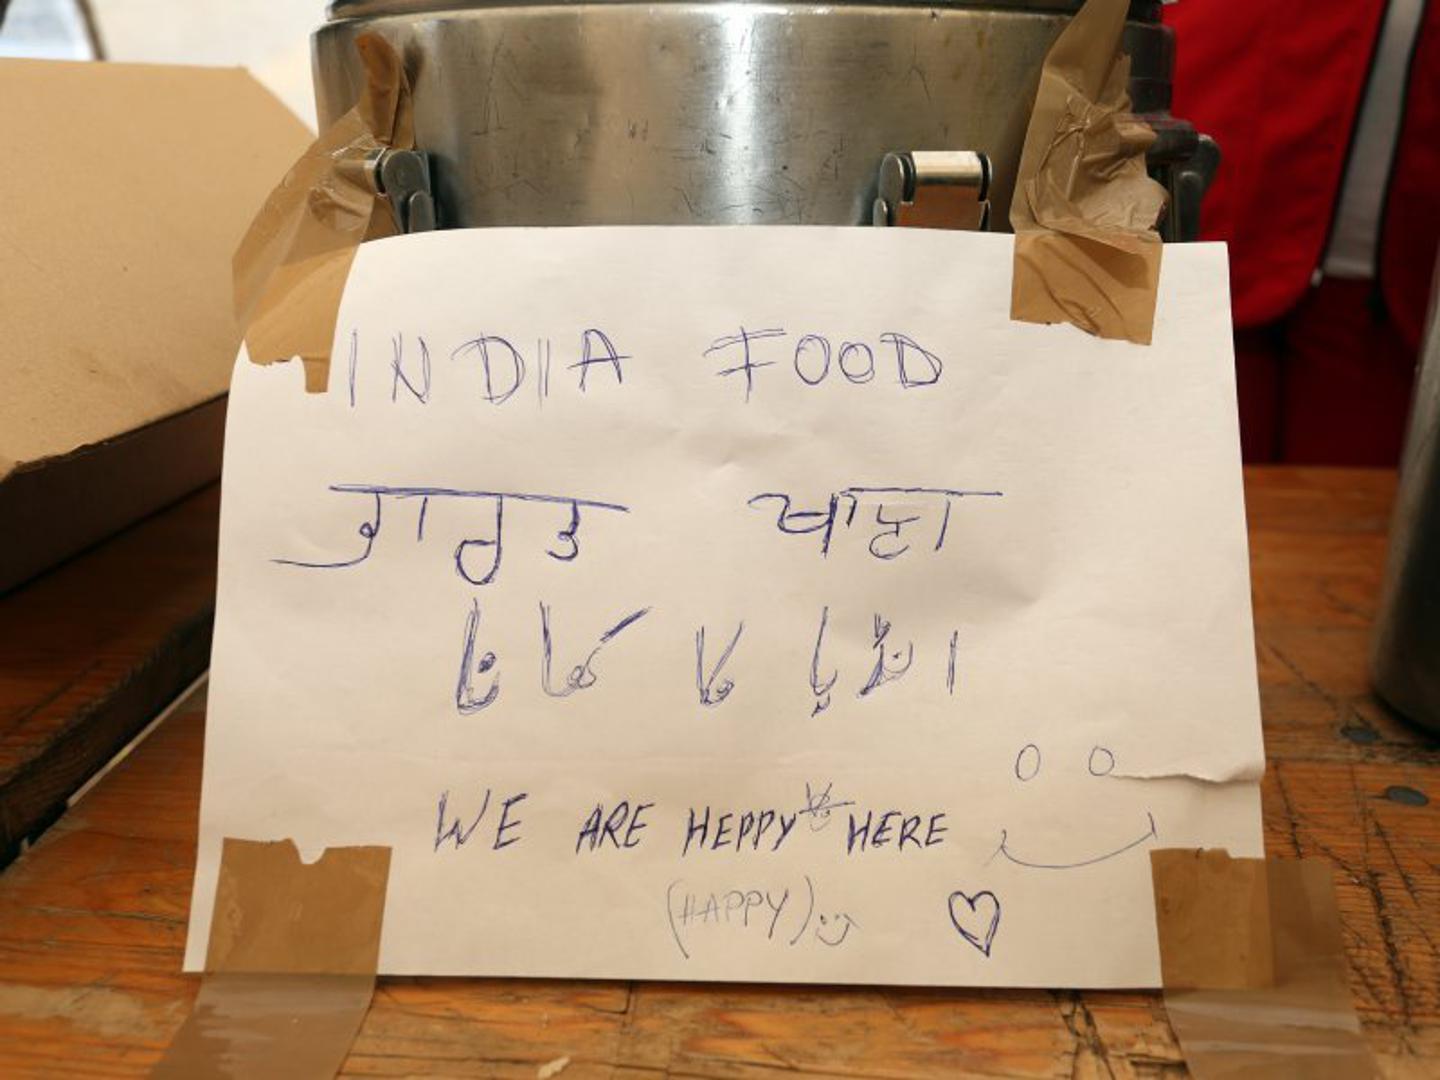 INDIA FOOD
ਭਾਰਤ ਖਾਣਾ
انڈیا کا کھانا
WE ARE HEPPY HERE
(HAPPY)